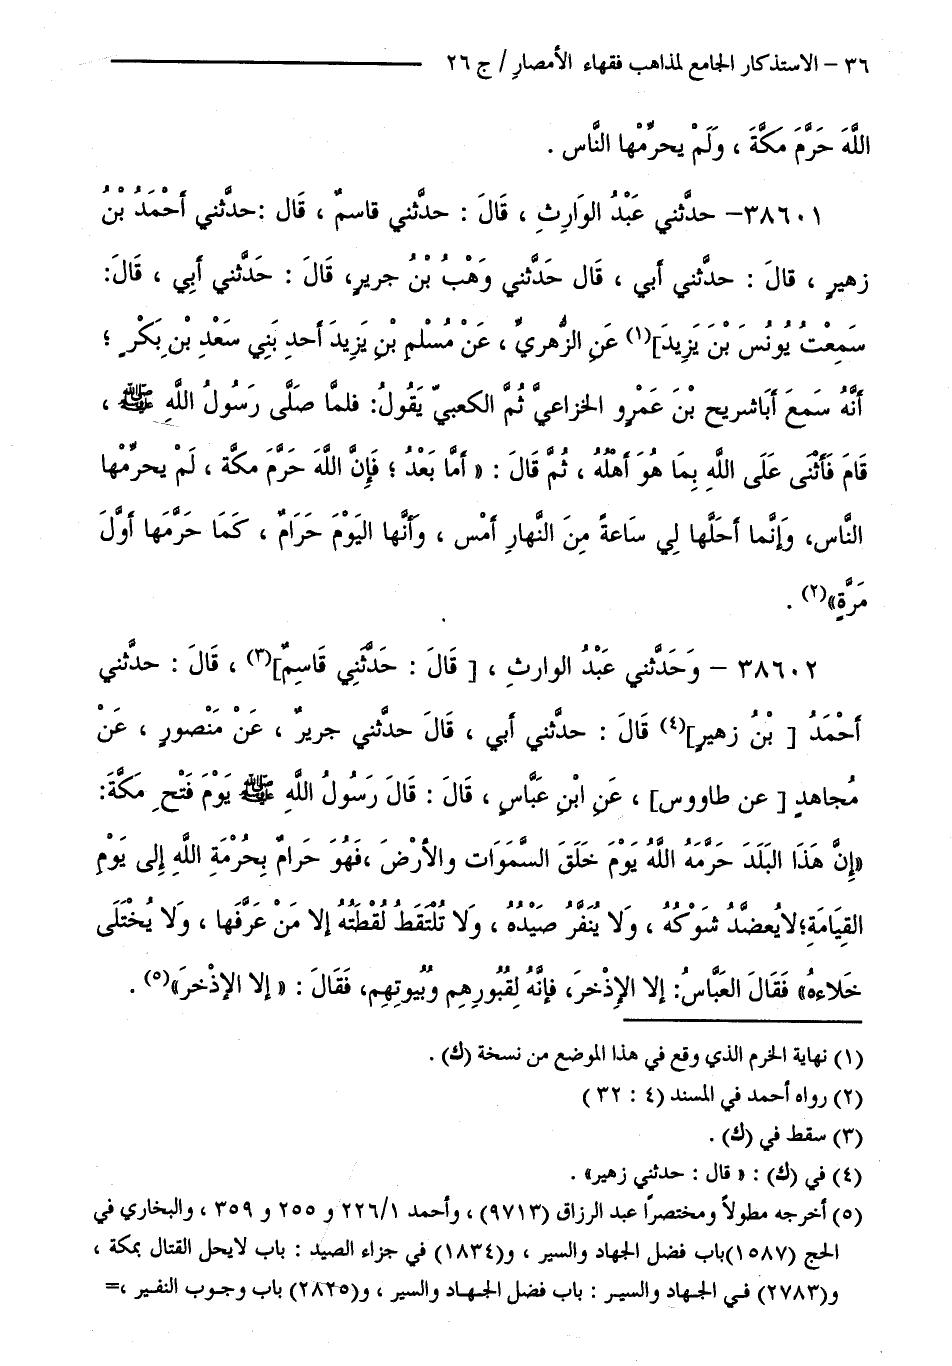 ٣٦ – الاستذكار الجامع لمذاهب فقهاء الأمصارِ / ج ٢٦
اللَّهَ حَرَّمَ مَكَّةَ ، ولَمْ يحرِّمْها النَّاس .
٣٨٦٠١– حدَّثني عَبْدُ الوَارِثِ ، قَالَ : حدَّثني قاسمٌ ، قَال :حدَّثني أَحْمَدُ بْنُ
زهيرٍ ، قالَ : حدَّثني أبي ، قَال حَدَّثني وَهْبُ بْنُ جريرٍ، قَالَ : حَدَّثني أَبِي ، قَالَ:
سَمِعْتُ يُونُسَ بْنَ يَزِيدَ](١) عَنِ الزُّهريِّ ، عَنْ مُسْلمِ بْنِ يَزِيدَ أحدِ بَنِي سَعْدِ بْنِ بَكْرٍ ؛
أَنَّهُ سَمعَ أَبَاشريح بْنَ عَمْرٍو الخزاعيَّ ثُمَّ الكعبيّ يَقُولُ: فلمَّا صَلَّى رَسُولُ اللَّهِ ﷺ ،
قَامَ فَأَثْنَى عَلَى اللَّهِ بِمَا هُوَ أَهْلُهُ ، ثُمَّ قَالَ : « أمَّا بَعْدُ ؛ فَإِنَّ اللَّهَ حَرَّمَ مكَّة ، لَمْ يحرِّمْها
النَّاس، وَإِنَّما أحَلَّها لِي سَاعَةً مِنَ النَّهارِ أمْس ، وَأَنَّها اليَوْمَ حَرَامٌ ، كَمَا حَرَّمَها أوَّلَ
مَرَّةٍ»(٢) .
٣٨٦٠٢ – وَحَدَّثني عَبْدُ الوارثِ ، [ قَالَ : حَدَّثَنِي قَاسِمٌ](٣) ، قَالَ : حدَّثني
أَحْمَدُ [ بْنُ زهيرٍ](٤) قَالَ : حدَّثني أبي ، قَالَ حدَّثني جريرٌ ، عَنْ مَنْصورٍ ، عَنْ
مُجاهدٍ [ عن طاووس] ، عَنِ ابْنِ عَبَّاسٍ ، قَالَ : قَالَ رَسُولُ اللَّهِ ﷺ يَوْمَ فَتْحِ مَكَّةَ:
«إِنَّ هَذَا البَلَدَ حَرَّمَهُ اللَّهُ يَوْمَ خَلَقَ السَّمَوَات والأرْضَ ،فَهُوَ حَرامٌ بِحُرْمَةِ اللَّهِ إِلى يَوْمِ
القِيَامَةِ؛لايُعضَّدُ شَوْكُهُ ، وَلا يُنَفَّرُ صَيْدُه ، وَلا تُلْتَقَطُ لُقطَتُهُ إلا مَنْ عَرَّفَها ، وَلا يُخْتَلَى
خَلاءه» فَقَالَ العَبَّاسُ: إلا الإِذْخرَ، فإِنَّهُ لِقُبُورِهِم وبُيوتِهِم، فَقَالَ : « إلا الإذْخرَ»(٥) .
(١) نهاية الخرم الذي وقع في هذا الموضع من نسخة (ك) .
(٢) رواه أحمد في المسند (٤ : ٣٢ )
(٣) سقط في (ك) .
(٤) في (ك) : « قال : حدثني زهير» .
(٥) أخرجه مطولاً ومختصراً عبد الرزاق (٩٧١٣) ، وأحمد ٢٢٦/١ و ٢٥٥ و ٣٥٩ ، والبخاري في
الحج (١٥٨٧)باب فضل الجهاد والسير ، و(١٨٣٤) في جزاء الصيد : باب لايحل القتال بمكة ،
و(٢٧٨٣) في الجهاد والسير : باب فضل الجهاد والسير ، و(٢٨٢٥) باب وجوب النفير ،=